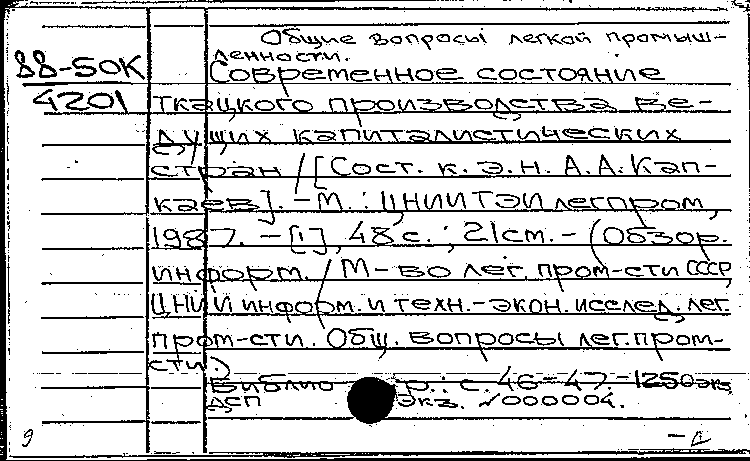 Общие вопросы легкой промыш-
ленности.
88-50К
4201
Современное состояние
ткацкого производства ве-
дущих капиталистических
стран / [Сост. к. э. н. А. А. Кап-
каев]. - М. : ЦНИИТЭИлегпром,
1987. - [1], 48 с. ; 21 см. - (Обзор.
информ. / М-во лег. пром-сти СССР,
ЦНИИ информ. и техн.-экон. исслед. лег.
пром-сти. Общ. вопросы лег. пром-
сти.)
Библио р.: с. 46-47. - 1250 экз.
ДСП экз. №000004.
9
- Д